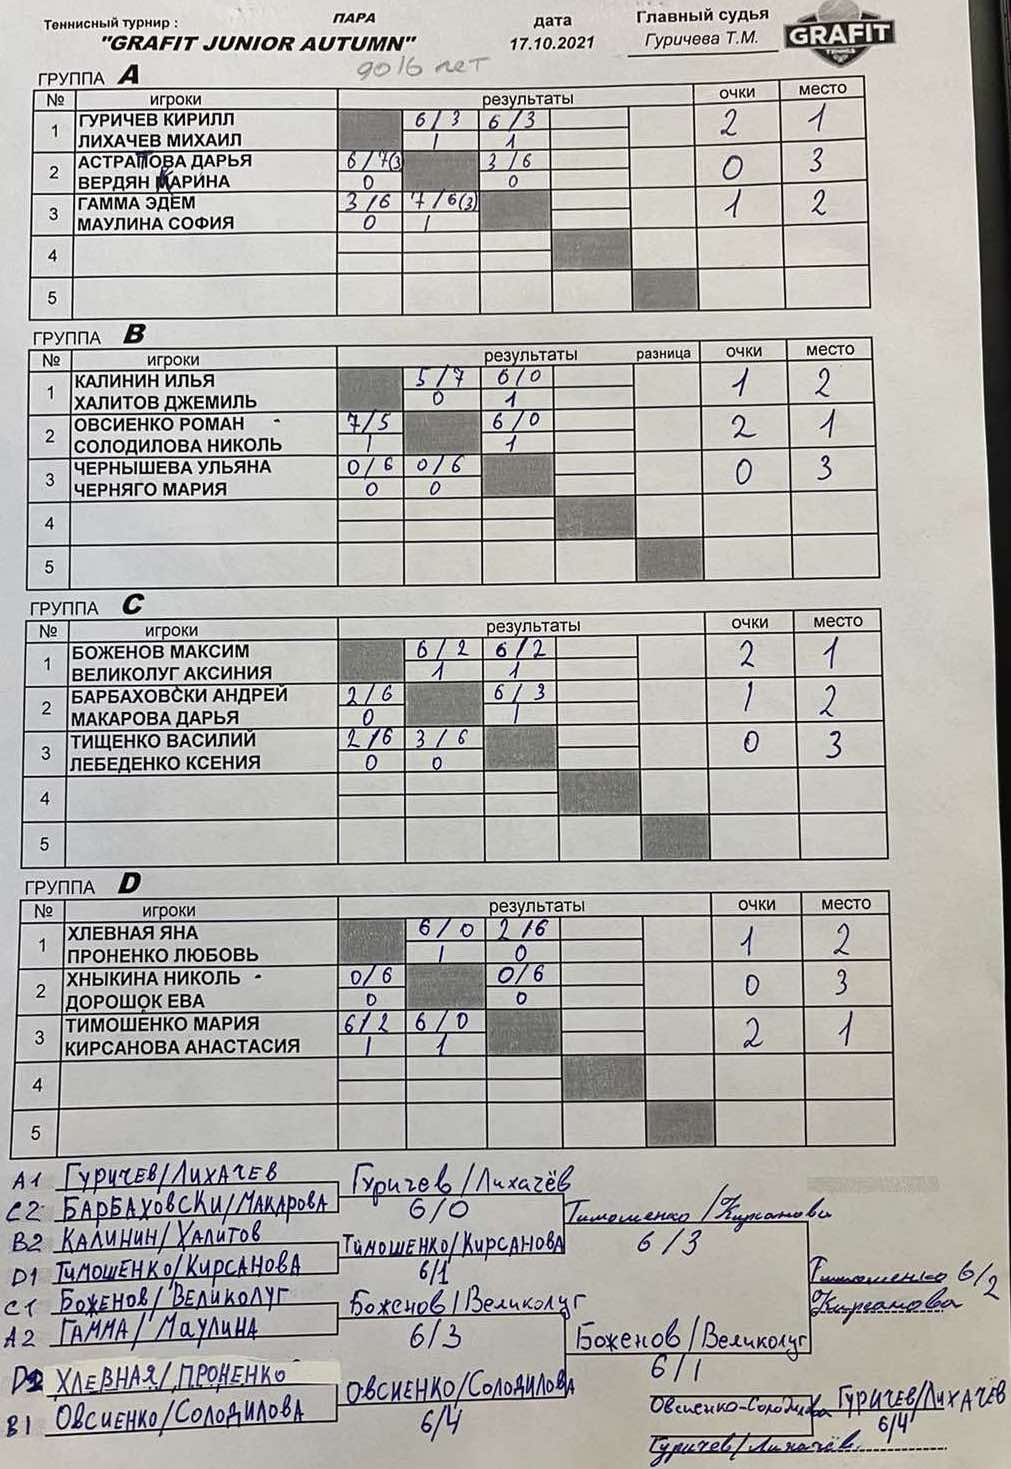 Теннисный турнир : ПАРА дата Главный судья GRAFIT
"GRAFIT JUNIOR AUTUMN" 17.10.2021 Гуричева Т.М. TENNIS
до 16 лет
ГРУППА A
№ игроки результаты очки место
1 ГУРИЧЕВ КИРИЛЛ 6/3 6/3 2 1
ЛИХАЧЕВ МИХАИЛ 1 1
2 АСТРАПОВА ДАРЬЯ 6/7(3) 3/6 0 3
ВЕРДЯН КАРИНА 0 0
3 ГАММА ЭДЕМ 3/6 7/6(3) 1 2
МАУЛИНА СОФИЯ 0 1
4
5
ГРУППА B
№ игроки результаты разница очки место
1 КАЛИНИН ИЛЬЯ 5/7 6/0 1 2
ХАЛИТОВ ДЖЕМИЛЬ 0 1
2 ОВСИЕНКО РОМАН - 7/5 6/0 2 1
СОЛОДИЛОВА НИКОЛЬ 1 1
3 ЧЕРНЫШЕВА УЛЬЯНА 0/6 0/6 0 3
ЧЕРНЯГО МАРИЯ 0 0
4
5
ГРУППА C
№ игроки результаты очки место
1 БОЖЕНОВ МАКСИМ 6/2 6/2 2 1
ВЕЛИКОЛУГ АКСИНИЯ 1 1
2 БАРБАХОВСКИ АНДРЕЙ 2/6 6/3 1 2
МАКАРОВА ДАРЬЯ 0 1
3 ТИЩЕНКО ВАСИЛИЙ 2/6 3/6 0 3
ЛЕБЕДЕНКО КСЕНИЯ 0 0
4
5
ГРУППА D
№ игроки результаты очки место
1 ХЛЕВНАЯ ЯНА 6/0 2/6 1 2
ПРОНЕНКО ЛЮБОВЬ 1 0
2 ХНЫКИНА НИКОЛЬ - 0/6 0/6 0 3
ДОРОШОК ЕВА 0 0
3 ТИМОШЕНКО МАРИЯ 6/2 6/0 2 1
КИРСАНОВА АНАСТАСИЯ 1 1
4
5
A1 ГУРИЧЕВ/ЛИХАЧЕВ
Гуричев/Лихачёв
C2 БАРБАХОВСКИ/МАКАРОВА
6/0
Тимошенко/Кирсанова
B2 КАЛИНИН/ХАЛИТОВ
ТИМОШЕНКО/КИРСАНОВА
6/3
D1 ТИМОШЕНКО/КИРСАНОВА
6/1
Тимошенко 6/2
Кирсанова
C1 БОЖЕНОВ/ВЕЛИКОЛУГ
Боженов/Великолуг
A2 ГАММА/МАУЛИНА
6/3
Боженов/Великолуг
6/1
D2 ХЛЕВНАЯ/ПРОНЕНКО
ОВСИЕНКО/СОЛОДИЛОВА
B1 ОВСИЕНКО/СОЛОДИЛОВА
6/4
Овсиенко-Солодилова
ГУРИЧЕВ/ЛИХАЧЁВ
6/4
Гуричев/Лихачёв